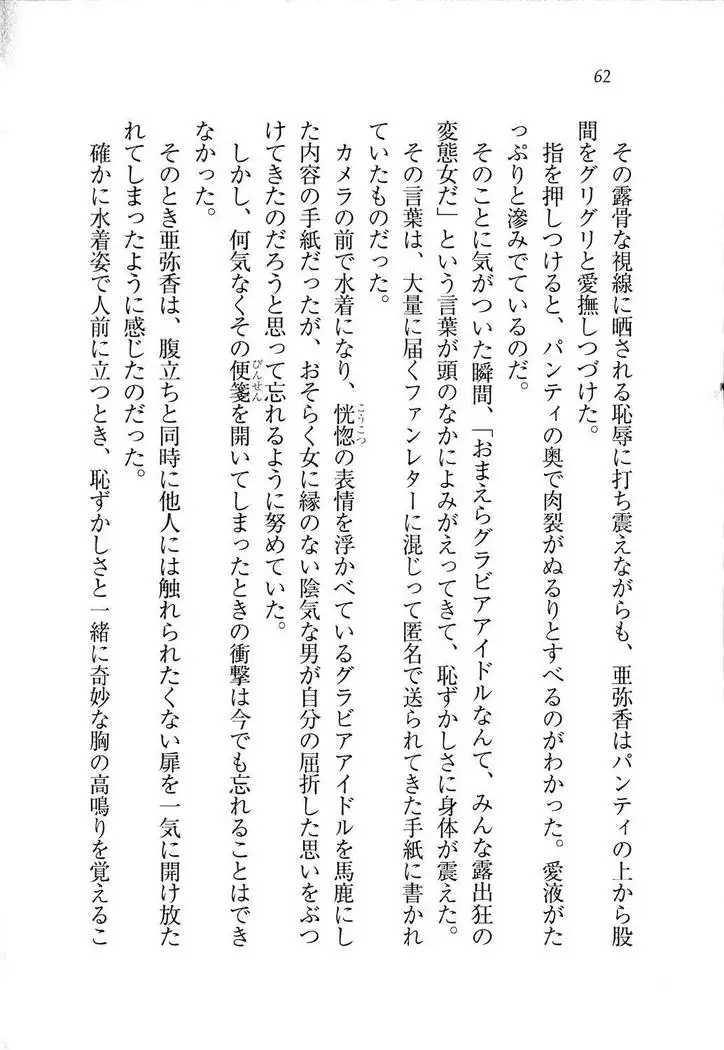 62
その露骨な視線に晒される恥辱に打ち震えながらも、亜弥香はパンティの上から股
間をグリグリと愛撫しつづけた。
指を押しつけると、パンティの奥で肉裂がぬるりとすべるのがわかった。愛液がた
っぷりと滲みでているのだ。
そのことに気がついた瞬間、「おまえらグラビアアイドルなんて、みんな露出狂の
変態女だ」という言葉が頭のなかによみがえってきて、恥ずかしさに身体が震えた。
その言葉は、大量に届くファンレターに混じって匿名で送られてきた手紙に書かれ
ていたものだった。
カメラの前で水着になり、恍惚こうこつの表情を浮かべているグラビアアイドルを馬鹿にし
た内容の手紙だったが、おそらく女に縁のない陰気な男が自分の屈折した思いをぶつ
けてきたのだろうと思って忘れるように努めていた。
しかし、何気なくその便箋びんせんを開いてしまったときの衝撃は今でも忘れることはでき
なかった。
そのとき亜弥香は、腹立ちと同時に他人には触れられたくない扉を一気に開け放た
れてしまったように感じたのだった。
確かに水着姿で人前に立つとき、恥ずかしさと一緒に奇妙な胸の高鳴りを覚えるこ